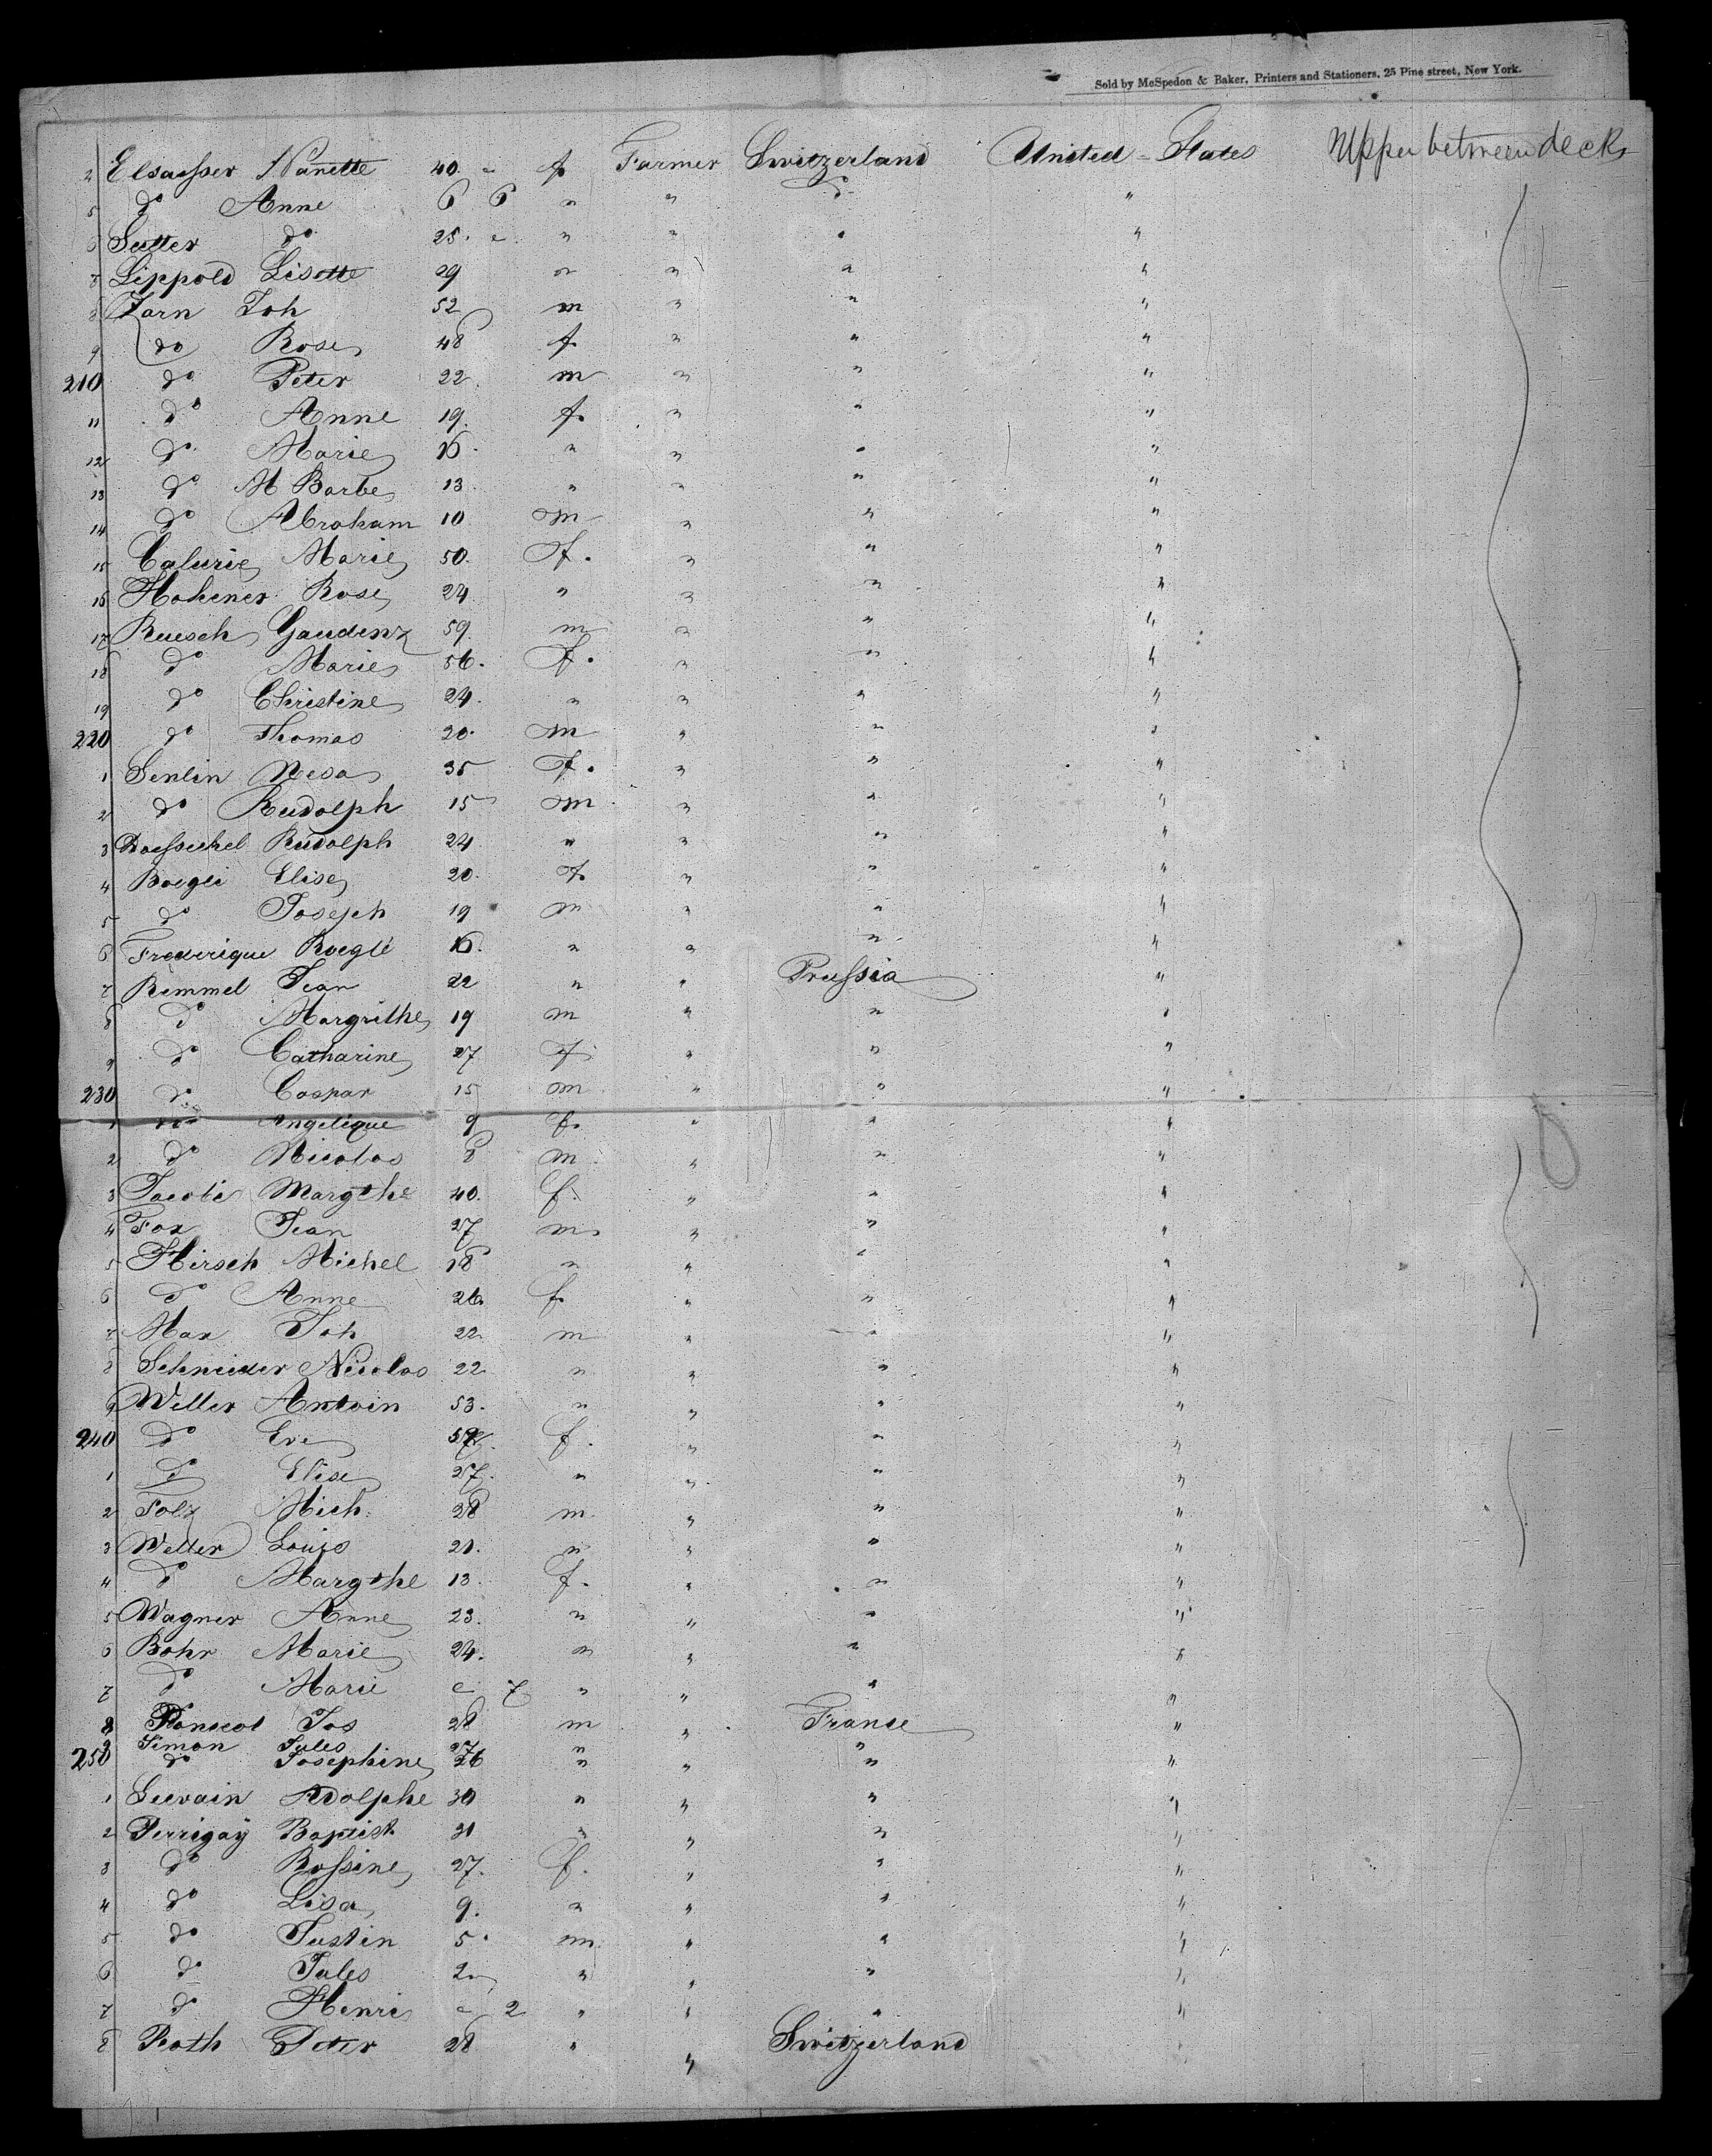 Sold by McSpedon & Baker, Printers and Stationers, 25 Pine street, New York.
2 Elsaesser Nanette 40 " f Farmer Switzerland United - States Upper between decks
5 do Anne 6 6 " " do "
6 Sutter do 25 " " " " "
7 Lippold Lisette 29 " " " "
8 Zarn Joh 52 m " " "
9 do Rose 48 f " " "
210 do Peter 22 m " " "
11 do Anne 19 f " " "
12 do Marie 16 " " " "
13 do M Barbe 13 " " " "
14 do Abraham 10 m " " "
15 Calurie Marie 50 f. " " "
16 Hohener Rose 24 " " " "
17 Ruesch Gaudenz 59. m " " "
18 do Marie 56. f. " " "
19 do Christine 24. " " " "
220 do Thomas 20. m " " "
1 Senlin Nesa 35 f. " " "
2 do Rudolph 15 m " " "
3 Rudolph 24 " " " "
4 Boegli Elise 20. f. " " "
5 do Joseph 19 m " " "
6 Frederique Boegli 16. " " " "
7 Remmel Jean 22 " " Prussia "
8 do Margrithe 19 m " " "
9 do Catharine 27 f " " "
230 do Caspar 15 m " " "
1 do Angelique 9 f. " " "
2 do Nicolas 8 m " " "
3 Jacobi Margthe 40. f. " " "
4 Fox Jean 27 m " " "
5 Hirsch Michel 18 " " " "
6 do Anne 26. f. " " "
7 Max Joh 22 m " " "
8 Schneider Nicolas 22 " " " "
9 Weller Antoin 53. " " " "
240 do Eve f. " " "
1 do Elise 27. " " " "
2 Folz Mich. 28 m " " "
3 Weller Louis 21. " " " "
4 do Margthe 13. f. " " "
5 Wagner Anne 23. " " " "
6 Bohr Marie 24. " " " "
7 do Marie " 7 " " " "
8 Jos 28 m " France "
9 Simon Jules 27 " "
250 do Josephine 26 " " " "
1 Adolphe 30 " " " "
2 Perrigay Baptist 31 " " " "
3 do Rossine 27. f. " " "
4 do Lisa 9. " " " "
5 do Justin 5. m " " "
6 do Jules 2 " " " "
7 do Henri " 2 " " " "
8 Roth Peter 28 " " Switzerland "